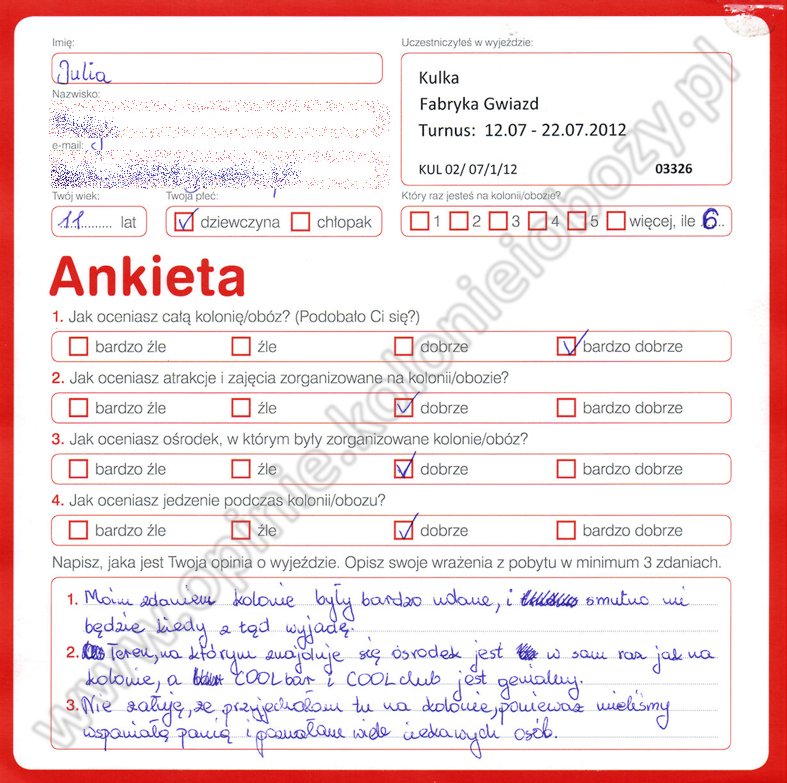 Imię:
Julia
Uczestniczyłeś w wyjeździe:
Kulka
Fabryka Gwiazd
Turnus: 12.07 - 22.07.2012
KUL 02/ 07/1/12 03326
Nazwisko:
e-mail:
Twój wiek:
11 lat
Twoja płeć:
dziewczyna chłopak
Który raz jesteś na kolonii/obozie?
1 2 3 4 5 więcej, ile 6
Ankieta
1. Jak oceniasz całą kolonię/obóz? (Podobało Ci się?)
bardzo źle źle dobrze bardzo dobrze
2. Jak oceniasz atrakcje i zajęcia zorganizowane na kolonii/obozie?
bardzo źle źle dobrze bardzo dobrze
3. Jak oceniasz ośrodek, w którym były zorganizowane kolonie/obóz?
bardzo źle źle dobrze bardzo dobrze
4. Jak oceniasz jedzenie podczas kolonii/obozu?
bardzo źle źle dobrze bardzo dobrze
Napisz, jaka jest Twoja opinia o wyjeździe. Opisz swoje wrażenia z pobytu w minimum 3 zdaniach.
1. Moim zdaniem kolonie były bardzo udane, i smutno mi
będzie kiedy z tąd wyjadę.
2. Teren, na którym znajduje się ośrodek jest w sam raz jak na
kolonie, a COOL bar i COOL club jest genialny.
3. Nie żałuję, że przyjechałam tu na kolonie, ponieważ mieliśmy
wspaniałą panią i poznałam wiele ciekawych osób.
www.opinie.kolonieiobozy.pl